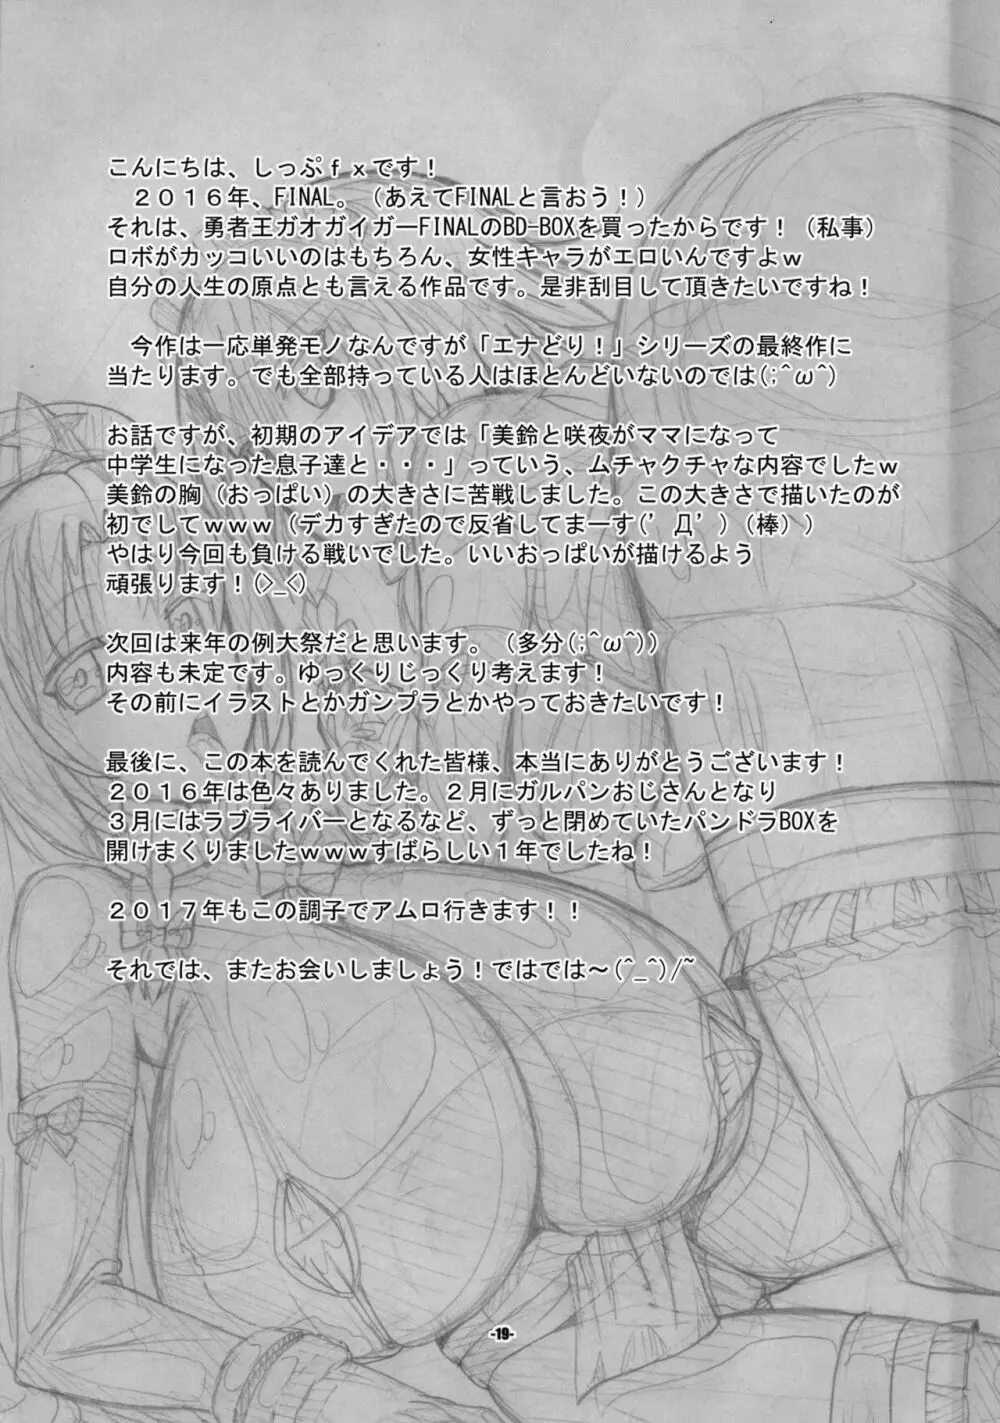 こんにちは、しっぷｆｘです！
２０１６年、FINAL。（あえてFINALと言おう！）
それは、勇者王ガオガイガーFINALのBD-BOXを買ったからです！（私事）
ロボがカッコいいのはもちろん、女性キャラがエロいんですよｗ
自分の人生の原点とも言える作品です。是非刮目して頂きたいですね！
今作は一応単発モノなんですが「エナどり！」シリーズの最終作に
当たります。でも全部持っている人はほとんどいないのでは(;^ω^)
お話ですが、初期のアイデアでは「美鈴と咲夜がママになって
中学生になった息子達と・・・」っていう、ムチャクチャな内容でしたｗ
美鈴の胸（おっぱい）の大きさに苦戦しました。この大きさで描いたのが
初でしてｗｗｗ（デカすぎたので反省してまーす(’Д’)（棒））
やはり今回も負ける戦いでした。いいおっぱいが描けるよう
頑張ります！(>_<)
次回は来年の例大祭だと思います。（多分(;^ω^)）
内容も未定です。ゆっくりじっくり考えます！
その前にイラストとかガンプラとかやっておきたいです！
最後に、この本を読んでくれた皆様、本当にありがとうございます！
２０１６年は色々ありました。２月にガルパンおじさんとなり
３月にはラブライバーとなるなど、ずっと閉めていたパンドラBOXを
開けまくりましたｗｗｗすばらしい１年でしたね！
２０１７年もこの調子でアムロ行きます！！
それでは、またお会いしましょう！ではでは～(^_^)/~
-19-